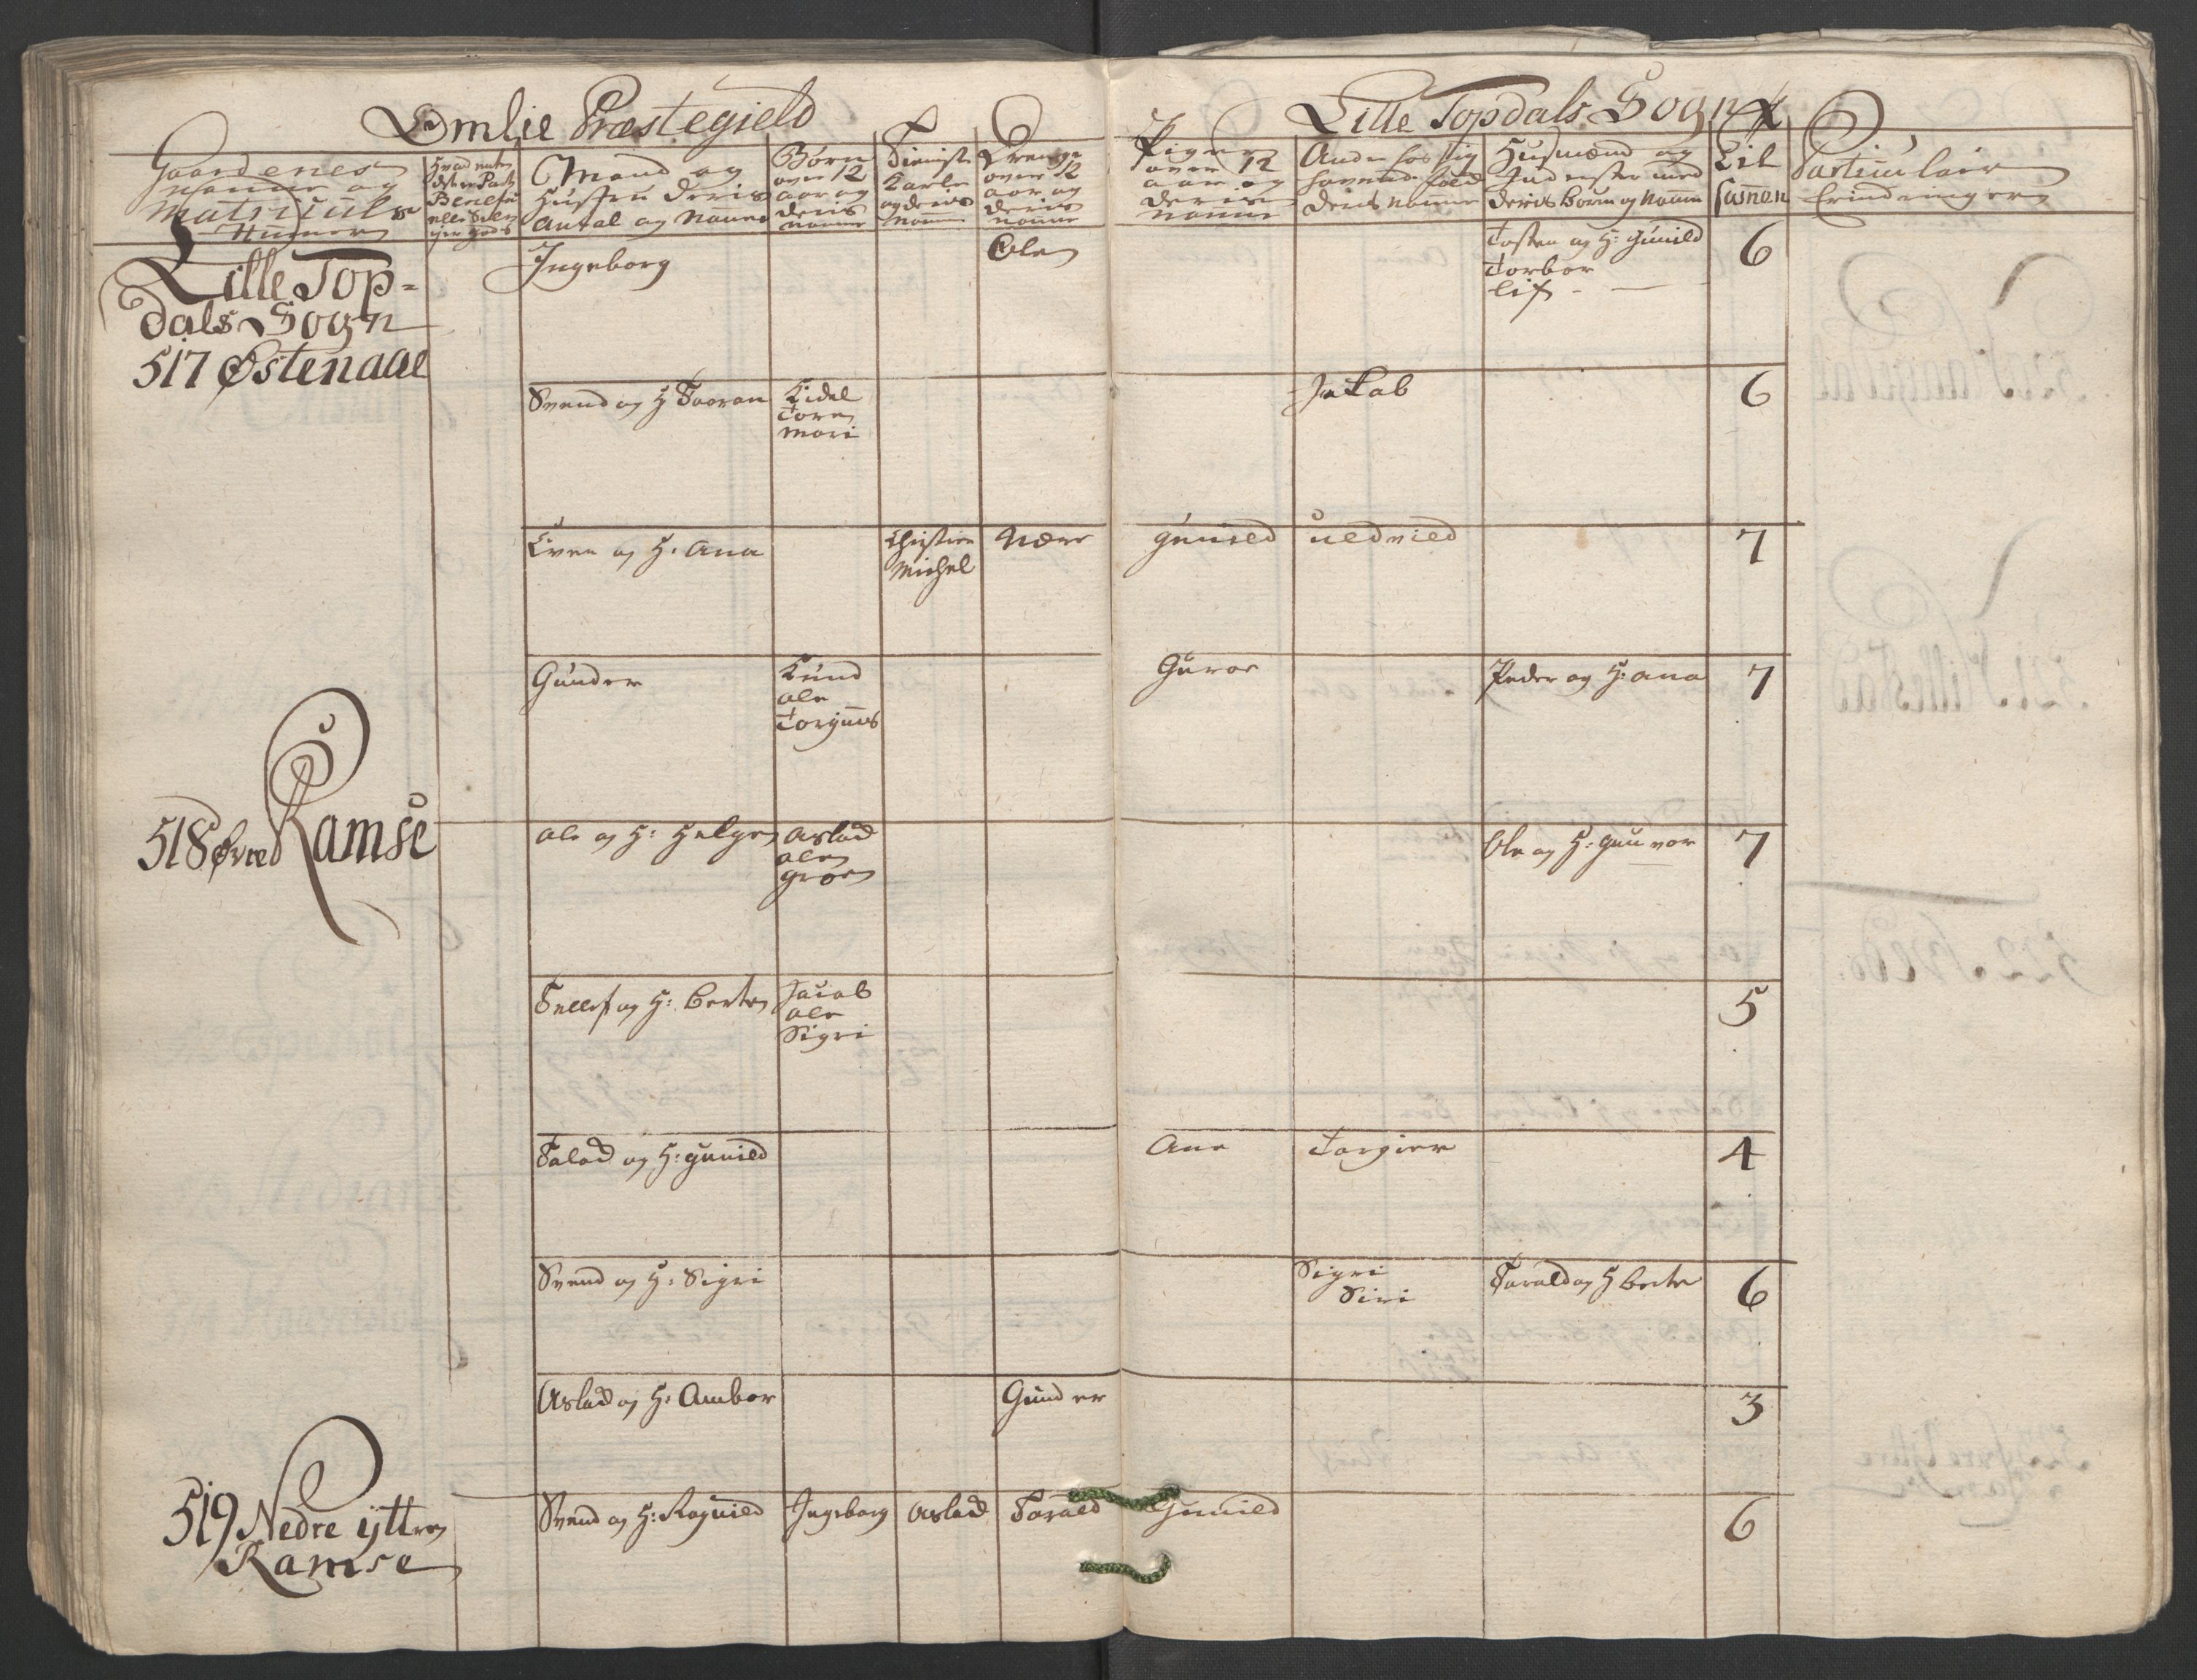 Omlie Præstegield
Lille Topdals Sogn
Gaardenes
Nanne og
Matriculs
Numer
Mand og
Hustru Deris
Antal og Nanne
Børn
over 12
aar og
Deris
Nanne
Tieniste
Karle
og deris
Nanne
Drenge
over 12
aar og
Deris
Nanne
Piger
over 12
aar og
Deris
Nanne
Andre hos sig
havende folck
Deris Nanne
Husmænd og
Inderster med
Deris Børn og Nanne
Til
samen
Particulair
Erindringer
Lille Top-
dals Sogn
517 Østenaae
Ingeborg
Ole
Tosten og H: Gunild
Torbor
6
Svend og H Taaran
Kidel
Tore
Mari
Jakob
6
Even og H: Ana
Christien
Michel
Gunild
7
Gunder
Knud
Ole
Guroe
Peder og H: Ana
7
518 Øvre Ramse
Ole og H: Helge
Aslad
Ole
Groe
Ole og H: Gunvor
7
Tellef og H: Berte
Jacob
Ole
Sigri
5
Talad og H: Gunild
Ane
Torgier
4
Svend og H: Sigri
Sigri
Siri
Tarald og H Berte
6
Aslad og H: Anbor
Gunder
3
519 Nedre yttre
Ramse
Svend og H: Ragnild
Ingeborg
Aslad
Tarald
Gunild
6